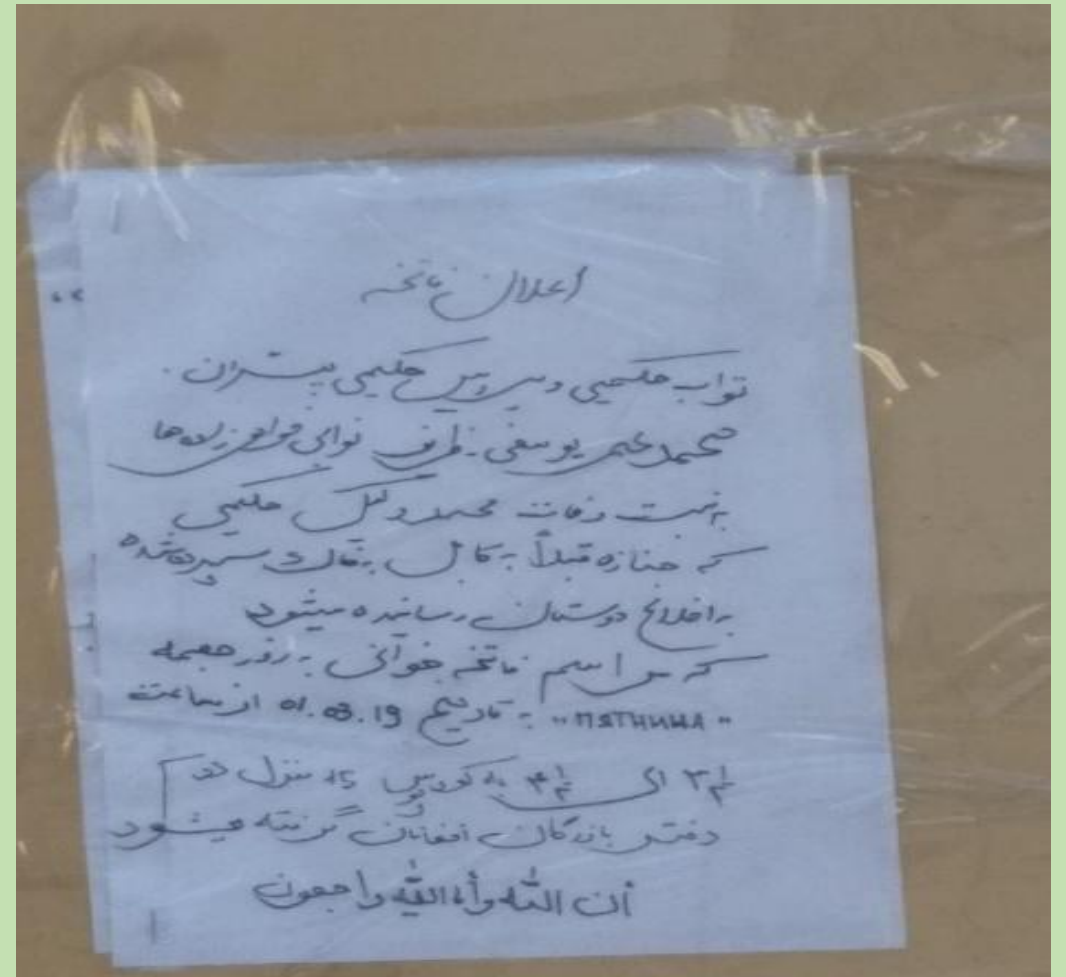 اعلان فاتحه
تواب حکیمی و حکیمی پسران
محمد عمر یوسفی نوابی زاده ها
به نسبت وفات محمد وکیل حکیمی
که جنازه قبلاً به کابل بخاک سپرده شده
به اطلاع دوستان رسانیده میشود
که مراسم فاتحه خوانی به روز جمعه
"ПЯТНИЦА" به تاریخ 01.03.19 از ساعت
۳ ۱/۲ الی ۴ ۱/۲ به کورپوس 15 منزل دوم
دفتر بازرگانان افغانان گرفته میشود
أن الله وأنا الیه راجعون